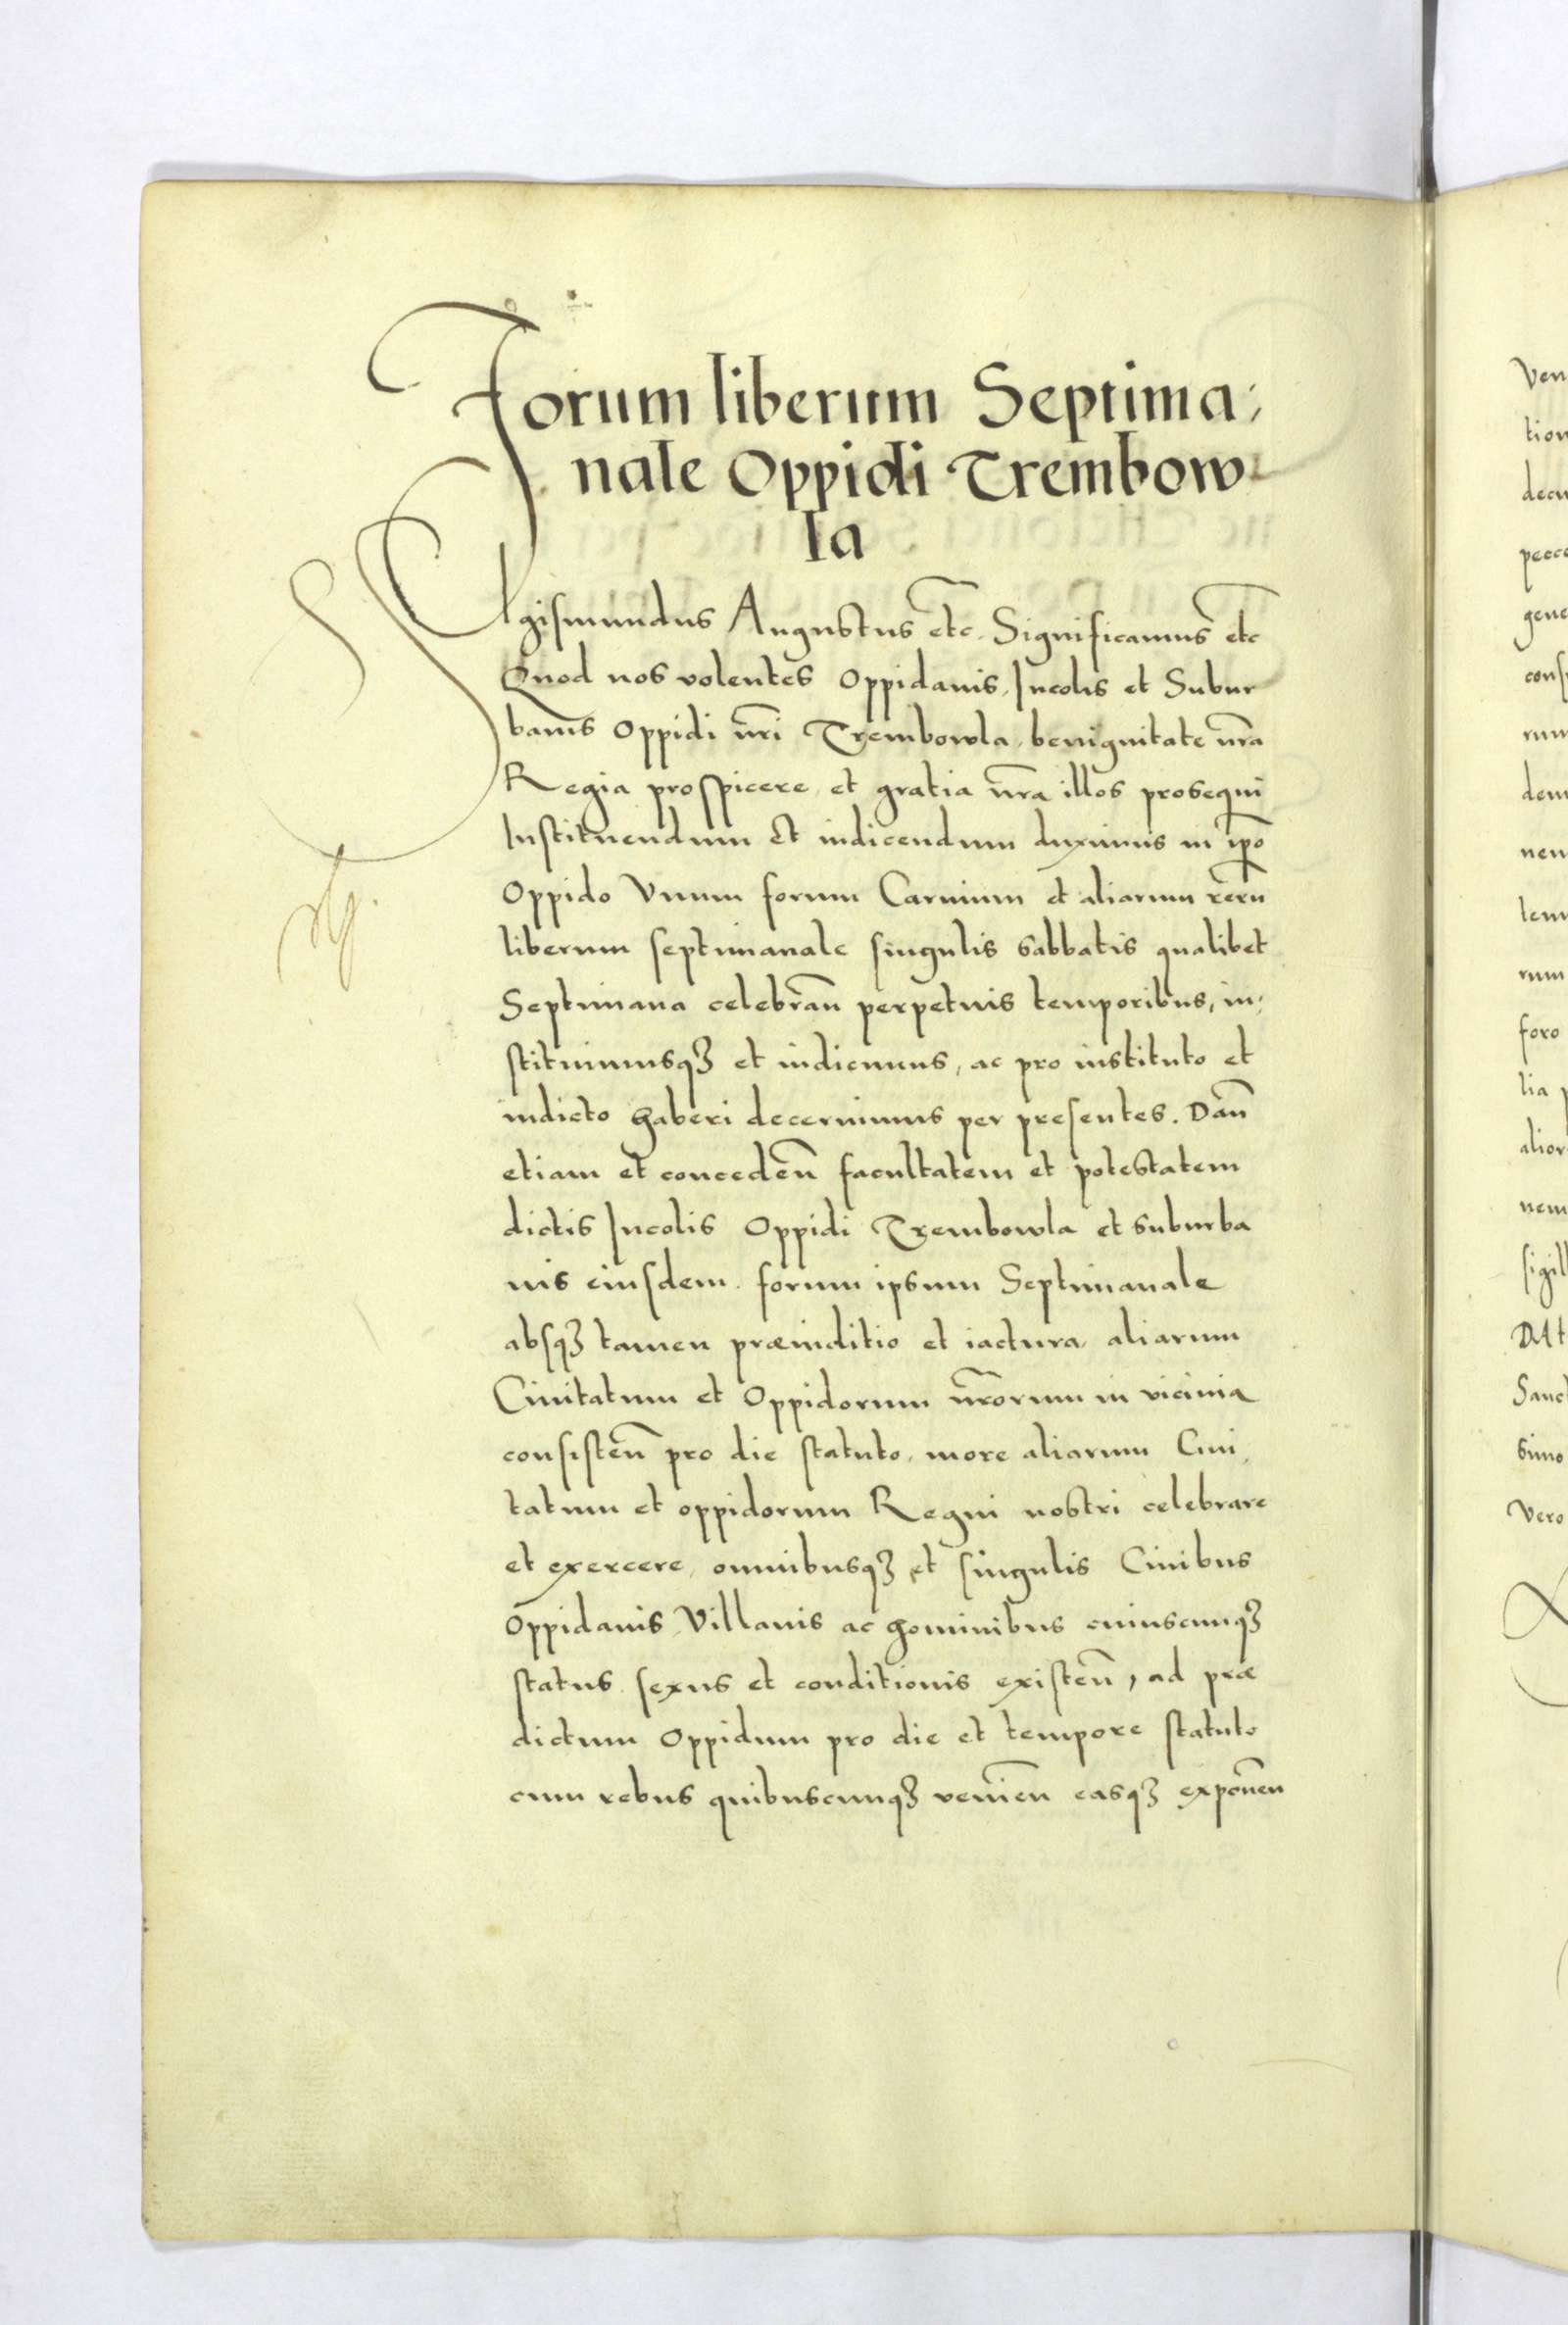 Forum liberum Septima,
nale Oppidi Trembow
la
Sigismundus Augustus etc. Significamus etc
Quod nos volentes Oppidanis, Incolis et Subur
banis Oppidi nr̃i Trembowla, benignitate nr̃a
Regia prospicere et gratia nr̃a illos prosequi
Instituendum et indicendum duximus in ip̃o
Oppido Vnum forum Carnium et aliarum rerũ
liberum septimanale singulis sabbatis qualibet
Septimana celebrañ perpetuis temporibus, in,
stituimusqꝫ et indicimus, ac pro instituto et
indicto haberi decernimus per presentes. Dañ
etiam et concedeñ facultatem et potestatem
dictis Incolis Oppidi Trembowla et suburba
nis eiusdem. forum ipsum Septimanale
absqꝫ tamen præiuditio et iactura aliarum
Ciuitatum et Oppidorum nr̃orum in vicinia
consisteñ pro die statuto, more aliarum Ciui,
tatum et oppidorum Regni nostri celebrare
et exercere, omnibusqꝫ et singulis Ciuibus
Oppidanis, Villanis ac hominibus cuiuscunqꝫ
status sexus et conditionis existeñ, ad præ
dictum Oppidum pro die et tempore statuto
cum rebus quibuscunqꝫ venieñ easqꝫ exponeñ
Ven
foro
lia
nem
sigill
Dat
Sanct
Vero